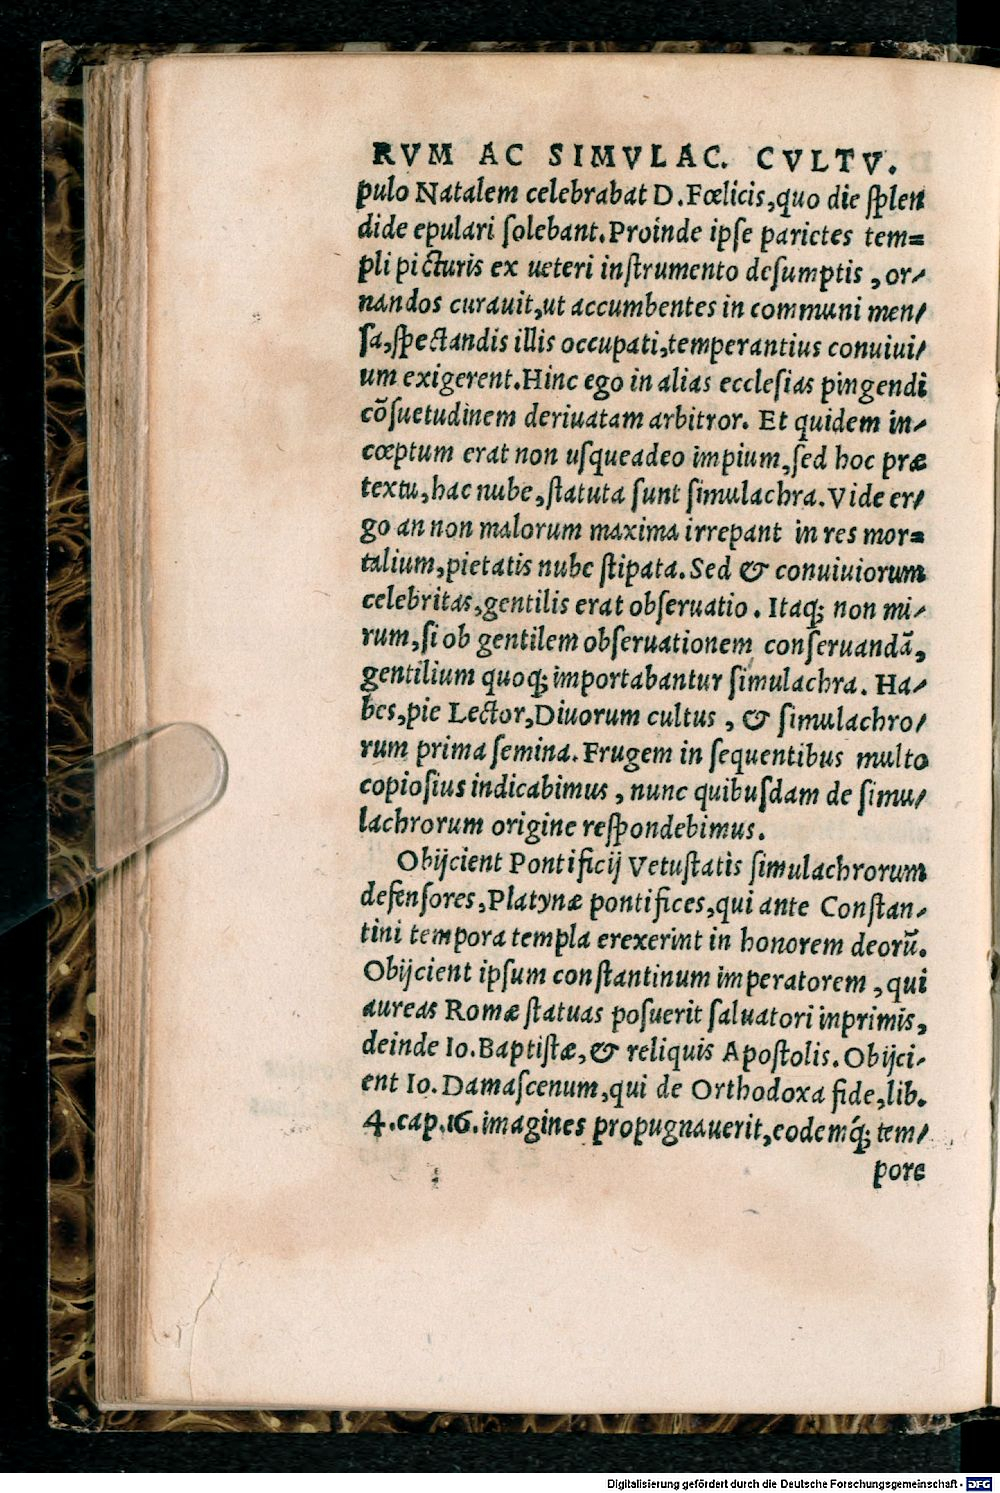 RVM AC SIMVLAC. CVLTV.
pulo Natalem celebrabat D. Fœlicis, quo die ſplen
dide epulari ſolebant. Proinde ipſe parietes tem=
pli picturis ex ueteri inſtrumento deſumptis, or-
nandos curauit, ut accumbentes in communi men-
ſa, ſpectandis illis occupati, temperantius conuiui-
um exigerent. Hinc ego in alias eccleſias pingendi
cõſuetudinem deriuatam arbitror. Et quidem in-
cœptum erat non uſqueadeo impium, ſed hoc præ
textu, hac nube, ſtatuta ſunt ſimulachra. Vide er-
go an non malorum maxima irrepant in res mor=
talium, pietatis nube ſtipata. Sed & conuiuiorum
celebritas, gentilis erat obſeruatio. Itaq; non mi-
rum, ſi ob gentilem obſeruationem conſeruandã,
gentilium quoq; importabantur ſimulachra. Ha-
bes, pie Lector, Diuorum cultus, & ſimulachro-
rum prima ſemina. Frugem in ſequentibus multo
copioſius indicabimus, nunc quibuſdam de ſimu-
lachrorum origine reſpondebimus.
Obijcient Pontificij Vetuſtatis ſimulachrorum
defenſores, Platynæ pontifices, qui ante Conſtan-
tini tempora templa erexerint in honorem deorũ.
Obijcient ipſum conſtantinum imperatorem, qui
aureas Romæ ſtatuas poſuerit ſaluatori inprimis,
deinde Io. Baptiſtæ, & reliquis Apoſtolis. Obijci-
ent Io. Damaſcenum, qui de Orthodoxa fide, lib.
4. cap. 16. imagines propugnauerit, eodemq́; tem-
pore
Digitalisierung gefördert durch die Deutsche Forschungsgemeinschaft - DFG